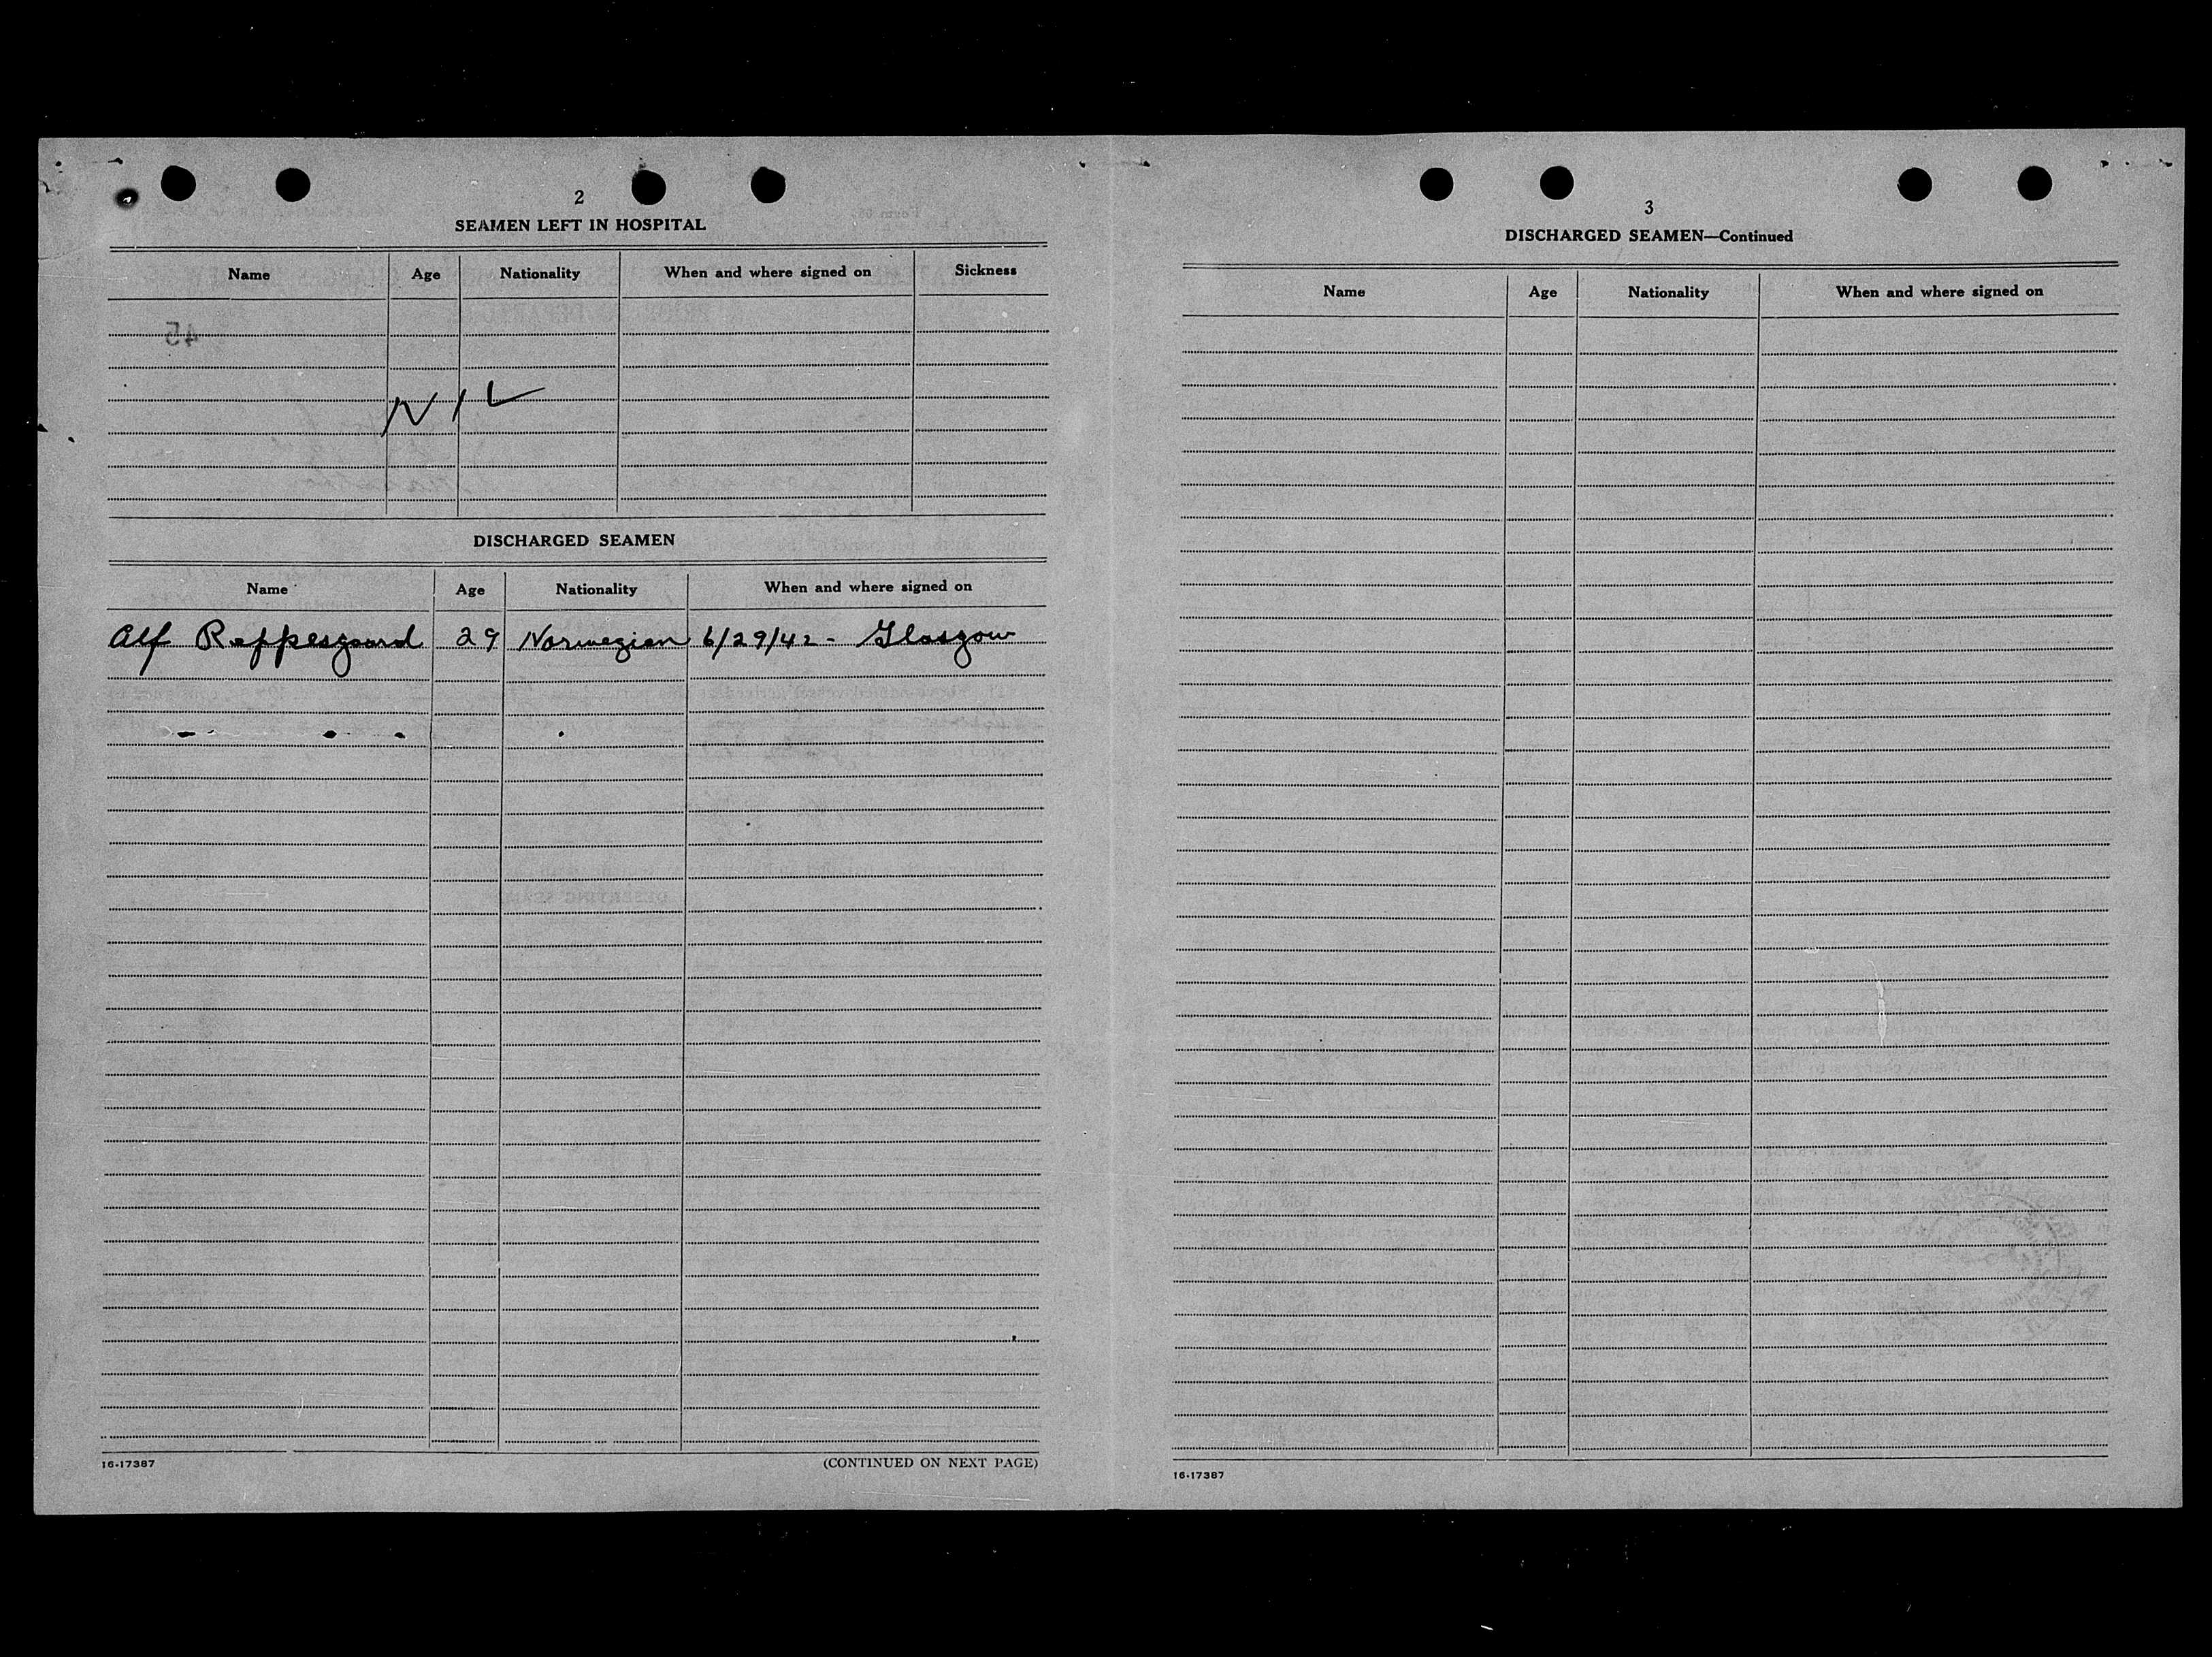 2
SEAMEN LEFT IN HOSPITAL
Name Age Nationality When and where signed on Sickness
45
NIL
DISCHARGED SEAMEN
Name Age Nationality When and where signed on
Alf Reppesgaard 29 Norwegian 6/29/42 - Glasgow
16-17387 (CONTINUED ON NEXT PAGE)
3
DISCHARGED SEAMEN—Continued
Name Age Nationality When and where signed on
16-17387